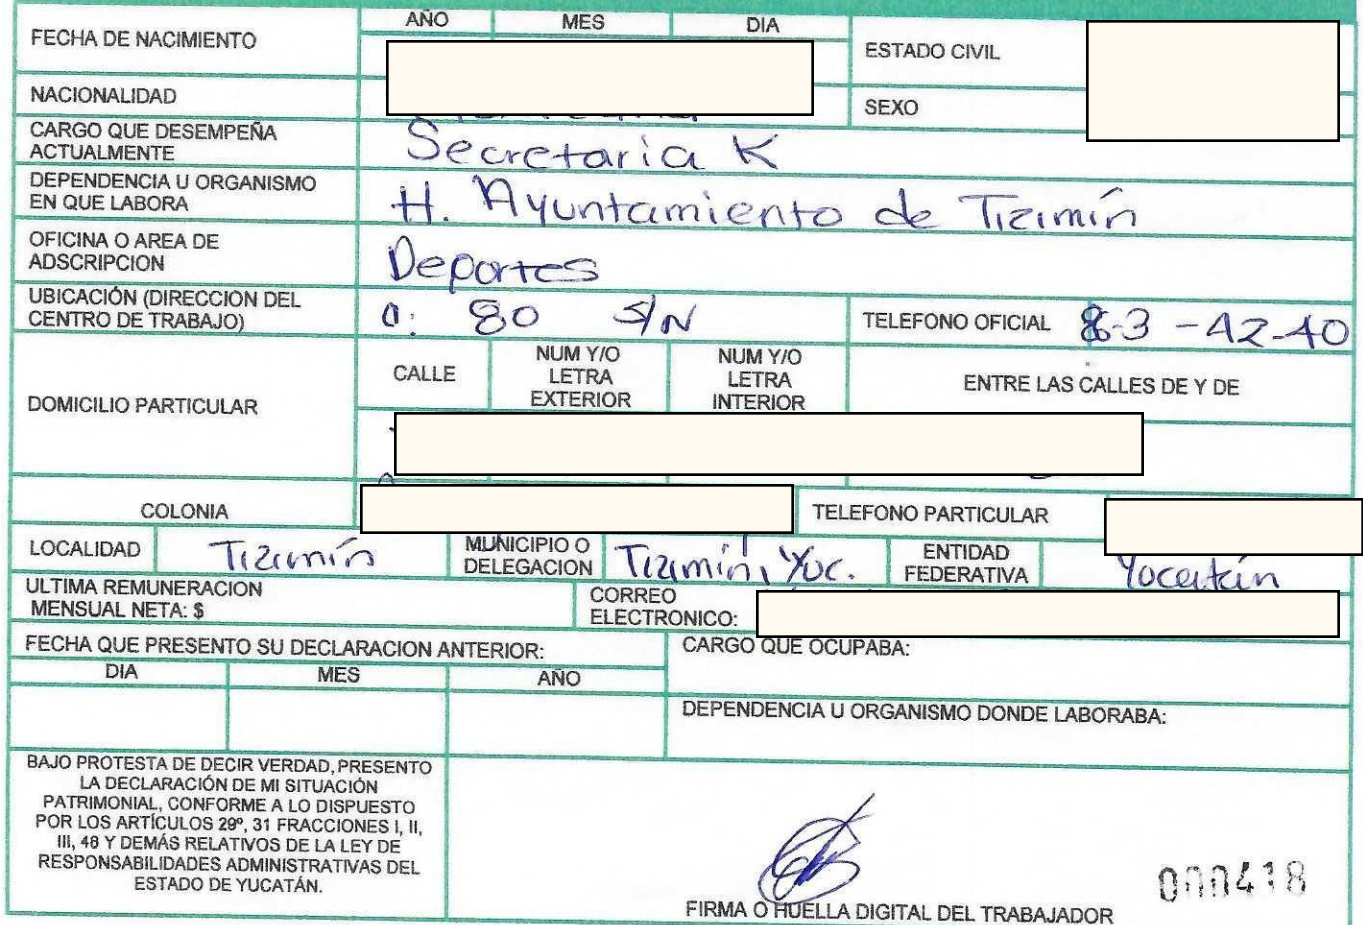 AÑO MES DIA
FECHA DE NACIMIENTO
ESTADO CIVIL
NACIONALIDAD
SEXO
CARGO QUE DESEMPEÑA
ACTUALMENTE
Secretaria K
DEPENDENCIA U ORGANISMO
EN QUE LABORA
H. Ayuntamiento de Tizimín
OFICINA O AREA DE
ADSCRIPCION
Deportes
UBICACIÓN (DIRECCION DEL
CENTRO DE TRABAJO)
C: 80 S/N
TELEFONO OFICIAL
86-3-42-40
DOMICILIO PARTICULAR
CALLE
NUM Y/O
LETRA
EXTERIOR
NUM Y/O
LETRA
INTERIOR
ENTRE LAS CALLES DE Y DE
COLONIA
TELEFONO PARTICULAR
LOCALIDAD
Tizimín
MUNICIPIO O
DELEGACION
Tizimín, Yuc.
ENTIDAD
FEDERATIVA
Yucatán
ULTIMA REMUNERACION
MENSUAL NETA: $
CORREO
ELECTRONICO:
FECHA QUE PRESENTO SU DECLARACION ANTERIOR:
CARGO QUE OCUPABA:
DIA MES AÑO
DEPENDENCIA U ORGANISMO DONDE LABORABA:
BAJO PROTESTA DE DECIR VERDAD, PRESENTO
LA DECLARACIÓN DE MI SITUACIÓN
PATRIMONIAL, CONFORME A LO DISPUESTO
POR LOS ARTÍCULOS 29º, 31 FRACCIONES I, II,
III, 48 Y DEMÁS RELATIVOS DE LA LEY DE
RESPONSABILIDADES ADMINISTRATIVAS DEL
ESTADO DE YUCATÁN.
000418
FIRMA O HUELLA DIGITAL DEL TRABAJADOR